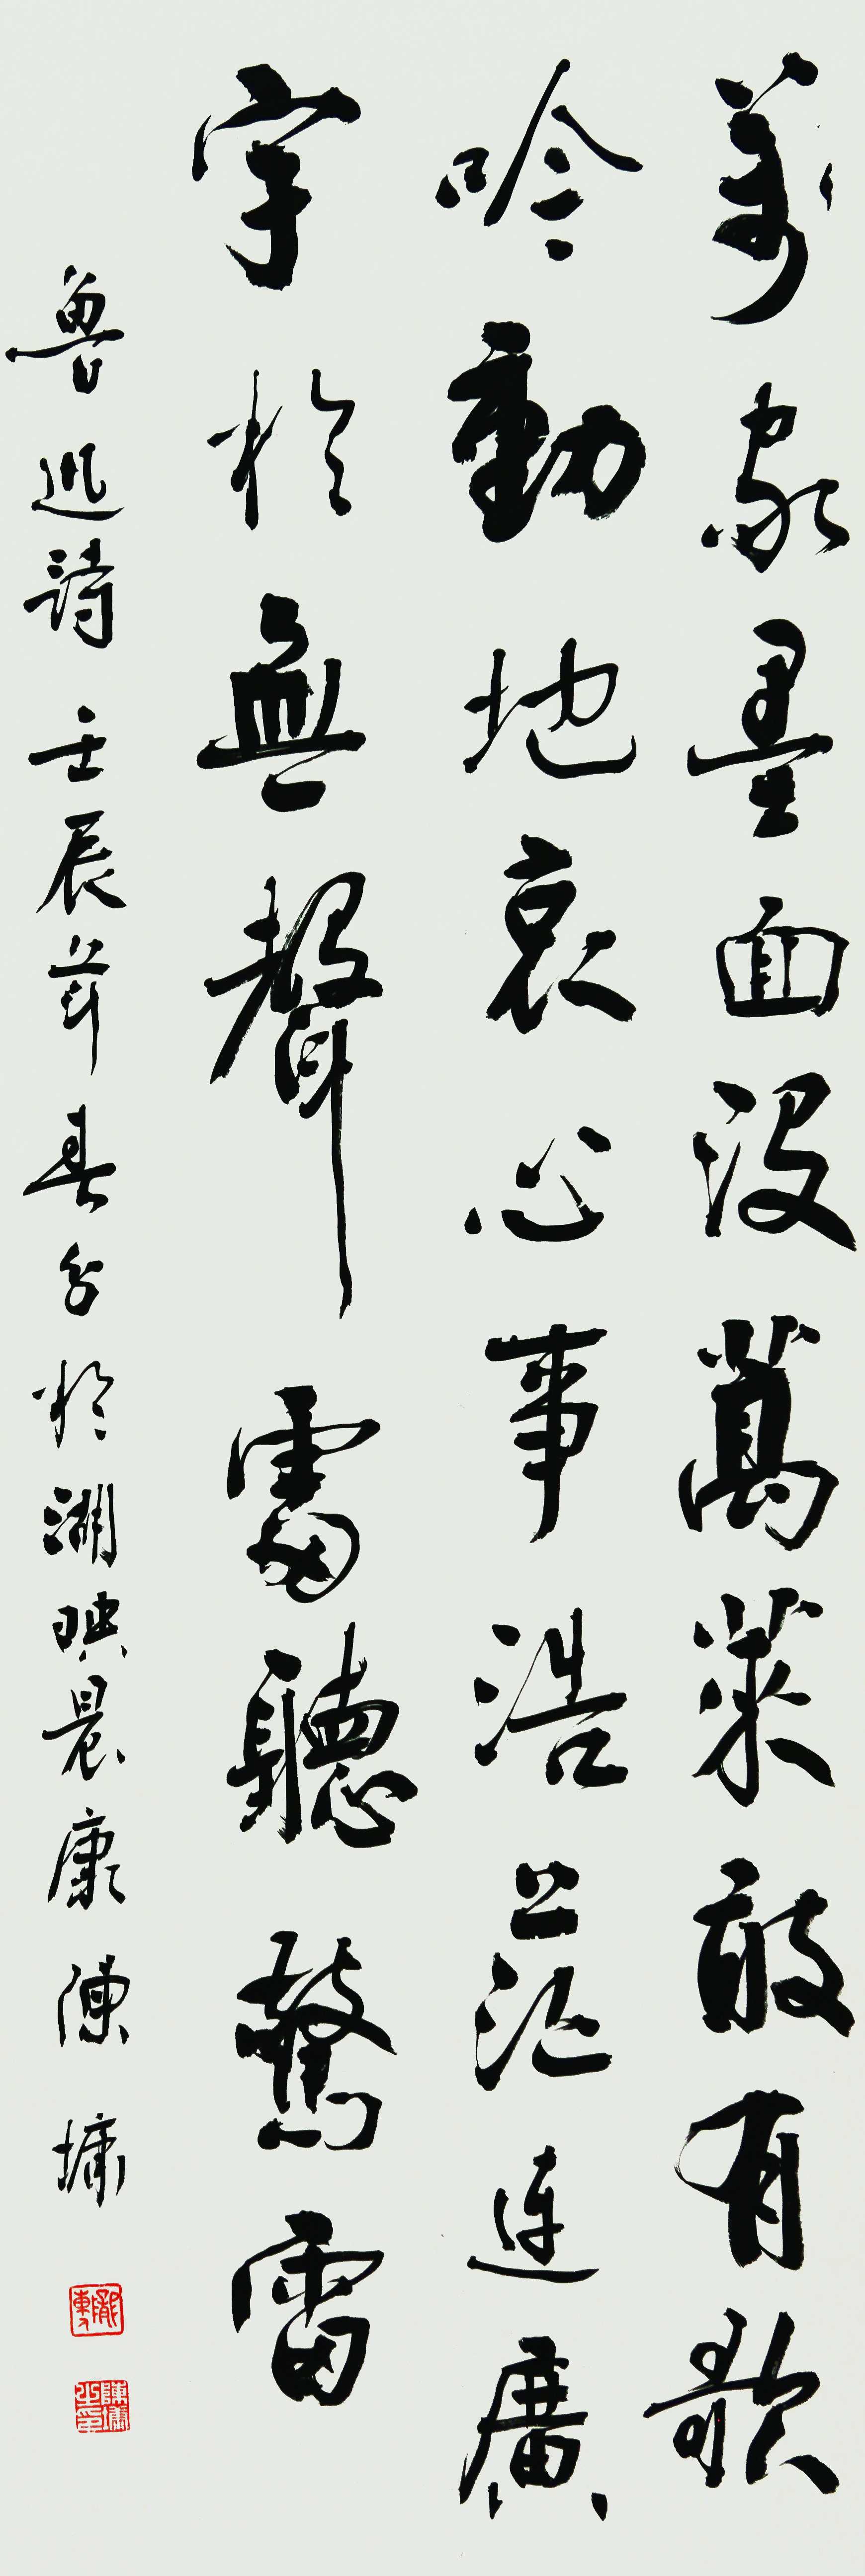 萬家墨面沒蒿萊敢有歌
吟動地哀心事浩茫連廣
宇於無聲處聽驚雷
魯迅詩 壬辰春分於映晨康 陳墉
陳墉之印